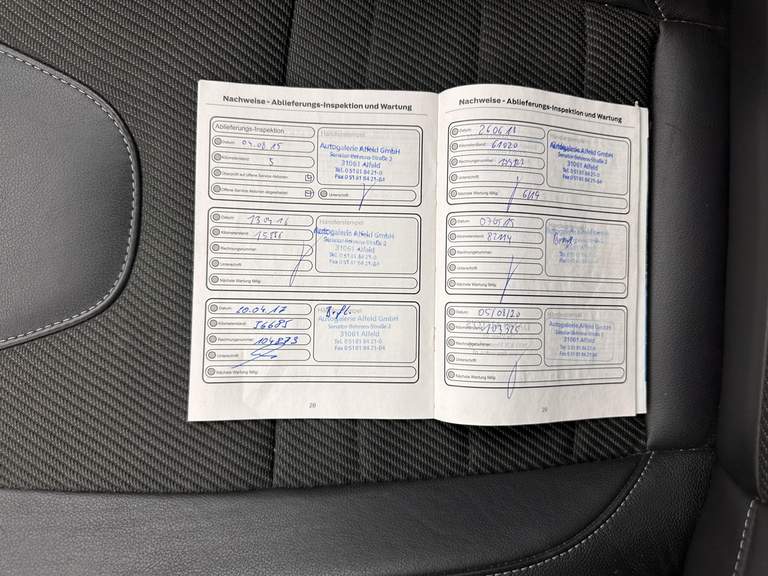 Nachweise - Ablieferungs-Inspektion und Wartung
Ablieferungs-Inspektion
Händlerstempel
Datum 04.08.15
Kilometerstand 5
Überprüft auf offene Service-Aktionen
Offene Service-Aktionen abgearbeitet
Unterschrift
Autogalerie Alfeld GmbH
Senator-Behrens-Straße 2
31061 Alfeld
Tel. 0 51 81 84 21-0
Fax 0 51 81 84 21-84
Datum 13.04.16
Kilometerstand
Rechnungsnummer
Unterschrift
Nächste Wartung fällig
Händlerstempel
Autogalerie Alfeld GmbH
Senator-Behrens-Straße 2
31061 Alfeld
Tel. 0 51 81 84 21-0
Fax 0 51 81 84 21-84
Datum 20.04.17
Kilometerstand 36685
Rechnungsnummer 104873
Unterschrift
Nächste Wartung fällig
Autogalerie Alfeld GmbH
Senator-Behrens-Straße 2
31061 Alfeld
Tel. 0 51 81 84 21-0
Fax 0 51 81 84 21-84
20
Nachweise - Ablieferungs-Inspektion und Wartung
Datum 26.06.18
Kilometerstand 61020
Rechnungsnummer
Unterschrift
Nächste Wartung fällig 6/19
Händlerstempel
Autogalerie Alfeld GmbH
Senator-Behrens-Straße 2
31061 Alfeld
Tel. 0 51 81 84 21-0
Fax 0 51 81 84 21-84
Datum 07.05.19
Kilometerstand 82114
Rechnungsnummer
Unterschrift
Nächste Wartung fällig
Datum 05/08/20
Kilometerstand 103325
Rechnungsnummer
Unterschrift
Nächste Wartung fällig
Autogalerie Alfeld GmbH
Senator-Behrens-Straße 2
31061 Alfeld
Tel. 0 51 81 84 21-0
Fax 0 51 81 84 21-84